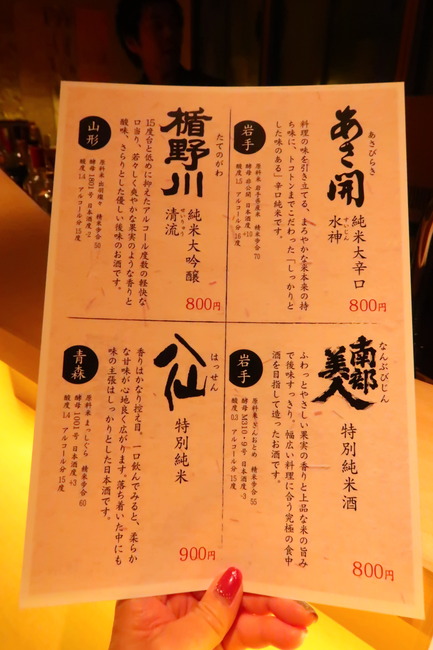 あさびらき
あさ開
純米大辛口
すいじん
水神
800円
料理の味を引き立てる、まろやかな米本来の持
ち味に、トコトンまでこだわった「しっかりと
した味のある」辛口純米です。
岩手
原料米 岩手県産米 精米歩合 70
酵母 非公開 日本酒度 +10
酸度 1.5 アルコール分 16度
たてのがわ
楯野川
純米大吟醸
せいりゅう
清流
800円
15度台と低めに抑えたアルコール度数の軽快な
口当り、若々しく爽やかな果実のような香りと
酸味、さらりとした優しい後味のお酒です。
山形
原料米 出羽燦々 精米歩合 50
酵母 1801号 日本酒度 -2
酸度 1.4 アルコール分 15度
なんぶびじん
南部美人
特別純米酒
800円
ふわっとやさしい果実の香りと上品な米の旨み
で後味すっきり。幅広い料理に合う究極の食中
酒を目指して造ったお酒です。
岩手
原料米 ぎんおとめ 精米歩合 55
酵母 M310・9号 日本酒度
アルコール分 15度
はっせん
八仙
特別純米
900円
香りはかなり控え目。一口飲んでみると、柔らか
な甘味が心地良く広がります。落ち着いた中にも
味の主張はしっかりとした日本酒です。
青森
原料米 まっしぐら 精米歩合 60
酵母 1001号 日本酒度 +3
酸度 1.4 アルコール分 15度